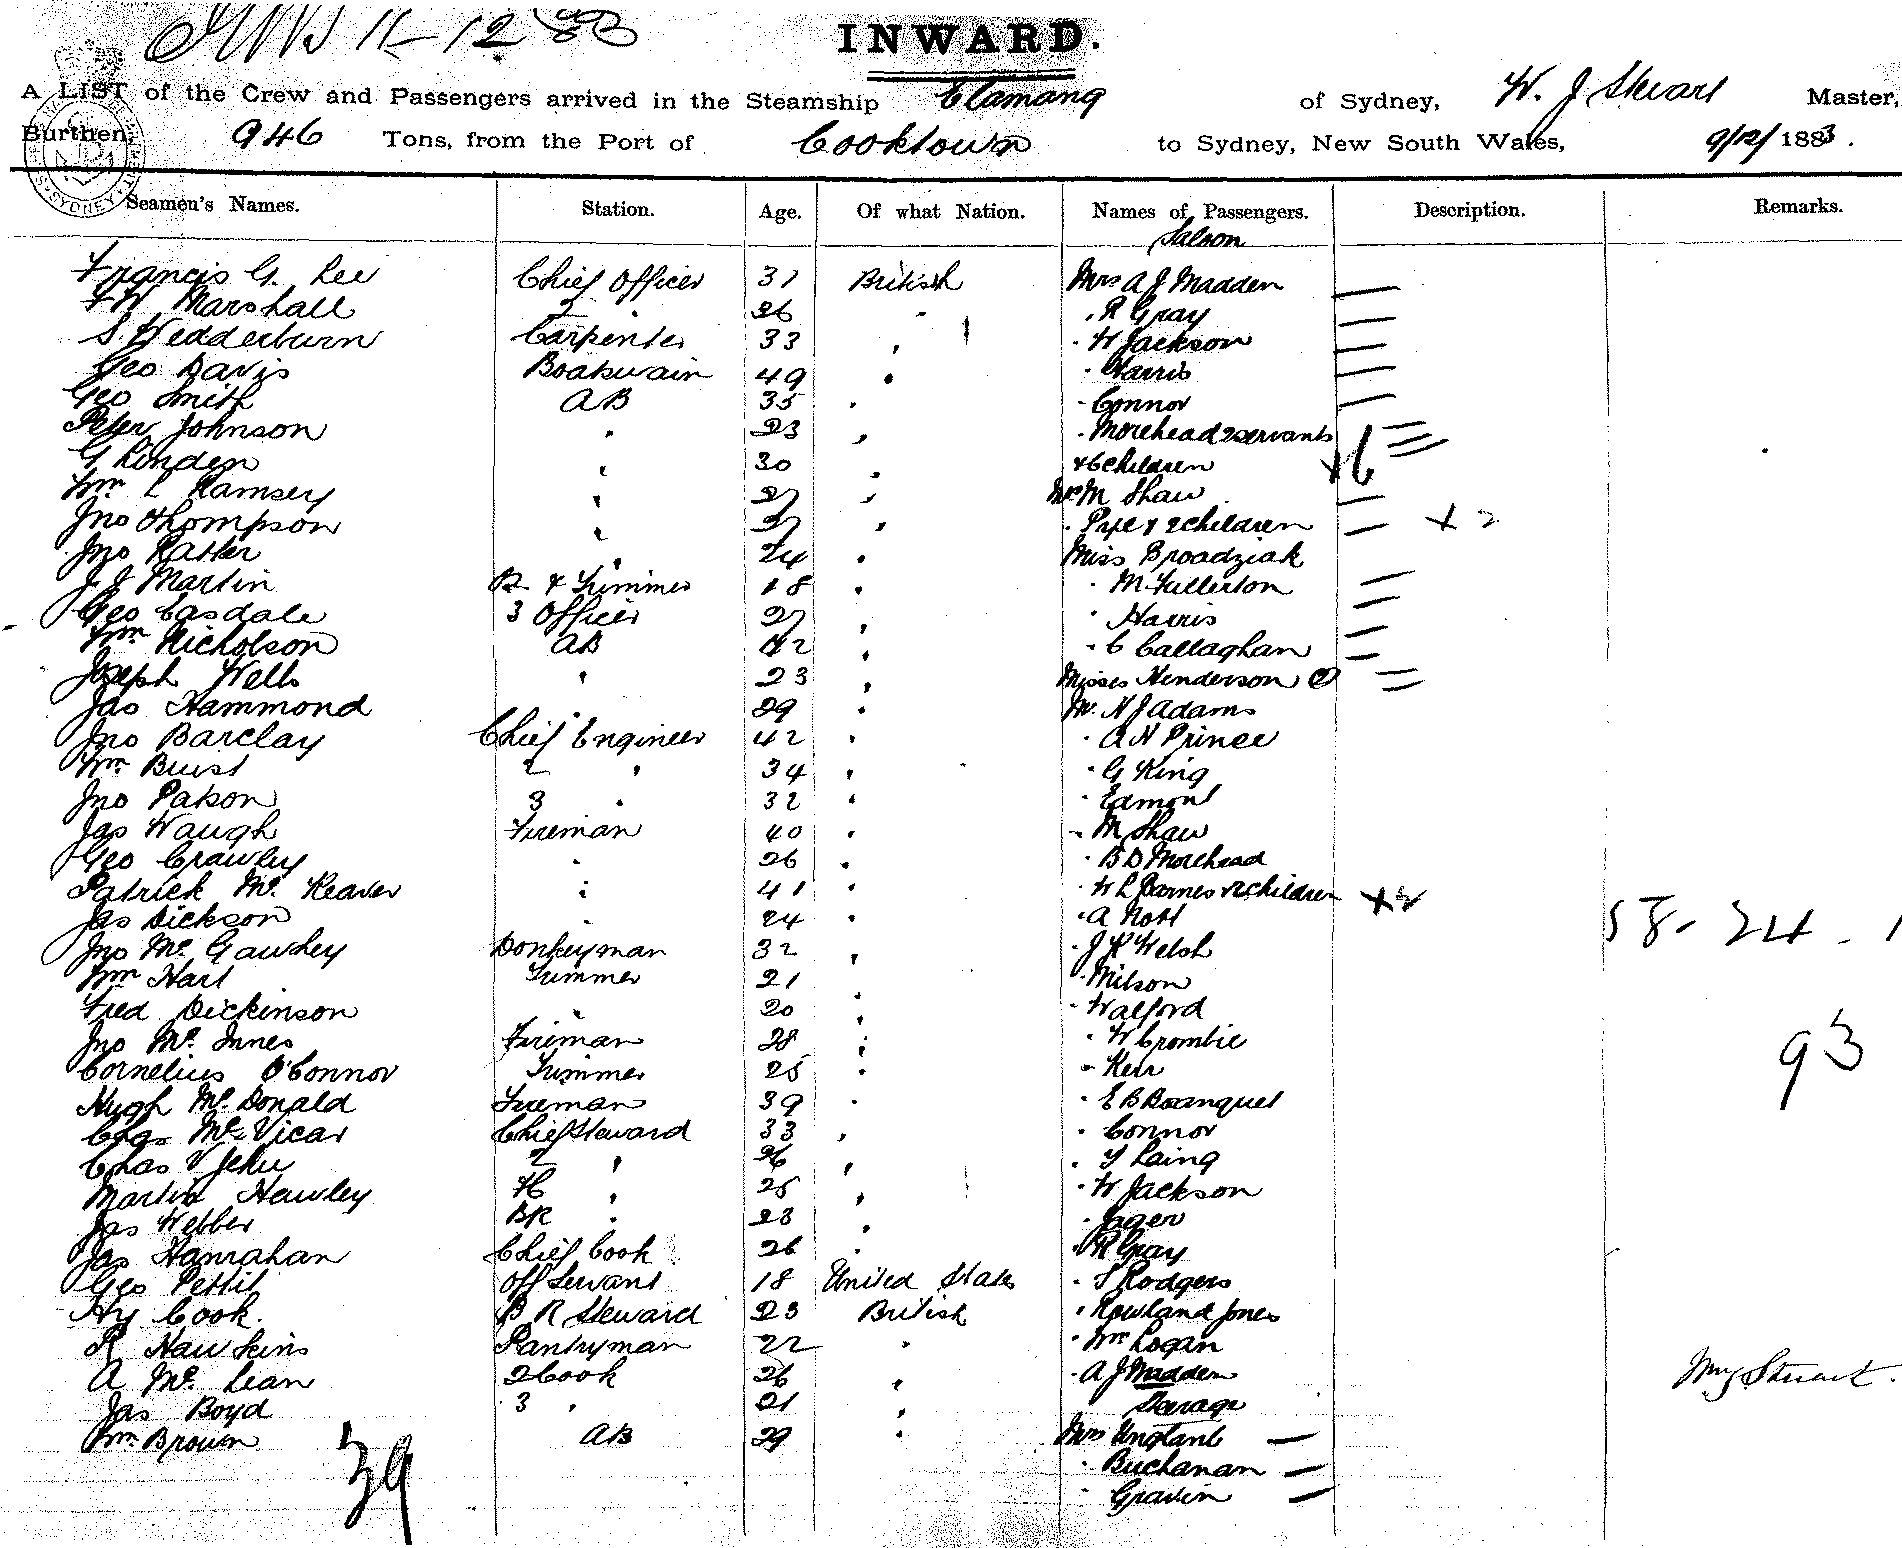 11-12 83
INWARD.
A LIST of the Crew and Passengers arrived in the Steamship Elamang of Sydney, W. J Stewart Master,
Burthen, 946 Tons, from the Port of Cooktown to Sydney, New South Wales, 9/12/1883.
Seamen's Names. Station. Age. Of what Nation. Names of Passengers. Description. Remarks.
Saloon
Francis G. Lee Chief Officer 31 British Mrs A J Madden
F W Marshall 2 " 26 " " R Gray
S Wedderburn Carpenter 33 " " W Jackson
Geo Davis Boatswain 49 " " Harris
Geo Smith AB 35 " " Connor
Peter Johnson " 23 " " Morehead 2 servants
G Linden " 30 " + 6 children + 6
Wm L Ramsey " 27 " Mrs M Shaw
Jno Thompson " 27 " " Pype & 2 children + 2
Jno Ratter " 24 " Miss Broadziak
J J Martin & Trimmer 18 " " M Fullerton
Geo Easdale 3 Officer 27 " " Harris
Wm Nicholson AB 42 " " C Callaghan
Joseph Wells " 23 " Misses Henderson (2)
Jas Hammond " 29 " Mr. H J Adams
Jno Barclay Chief Engineer 42 " " A H Prince
Wm Buist 2 " 34 " " G King
Jno Paton 3 " 32 " " Edmont
Jas Waugh Fireman 40 " " M Shaw
Geo Crawley " 26 " " B D Morehead
Patrick Mc. Keaver " 41 " " W L Barnes & 2 children + 2
Jas Dickson " 24 " " A Nott
Jno Mc Gawley Donkeyman 32 " " J K Welsh 58 - 24 - 1
Wm Hart Trimmer 21 " " Milson
Fred Dickinson " 20 " " Walford
Jno Mc. Innes Fireman 28 " " W Crombie 93
Cornelius O'Connor Trimmer 25 " " Kerr
Hugh Mc. Donald Fireman 39 " " E B Bosanquet
Chas Mc. Vicar Chief Steward 33 " " Connor
Chas V Jehu 2 " 26 " " T Laing
Martin Hawley " 25 " " W Jackson
Jas Webber BR " 23 " " Jager
Jas Hanrahan Chief Cook 26 " " R Gray
Geo Pettit Off Servant 18 United States " S Rodgers
Hy Cook. B R Steward 23 British " Rowland Jones
R Hawkins Pantryman 22 " " Wm Logan
A Mc. Lean 2 Cook 26 " " A J Madden Stuart.
Jas Boyd 3 " 21 " Steerage
Wm Brown AB 29 " Mrs
39 " Buchanan
" Gravin